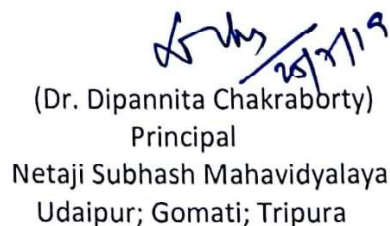 25/7/19
(Dr. Dipannita Chakraborty)
Principal
Netaji Subhash Mahavidyalaya
Udaipur; Gomati; Tripura